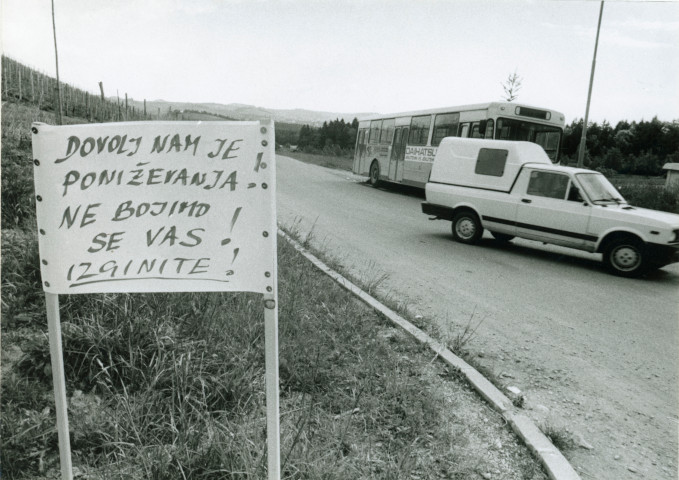 DOVOLJ NAM JE
PONIŽEVANJA!
NE BOJIMO
SE VAS!
IZGINITE!
DAIHATSU